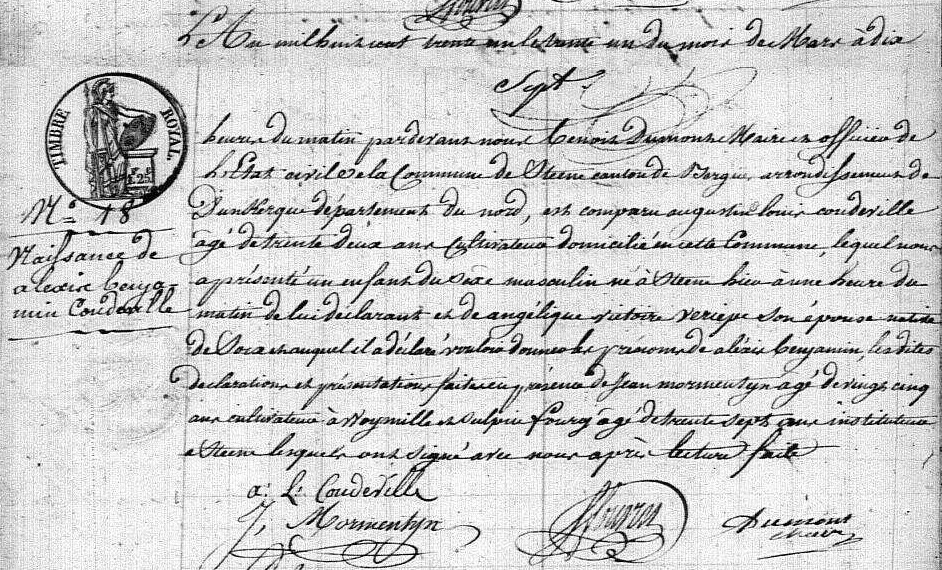 L'An mil huit cent trente un le trente un du mois de Mars à dix
Sept.
heures du matin pardevant nous Benoit Dumont Maire et officier de
l'Etat civil de la Commune de Steene canton de Bergues, arrondissement de
Dunkerque département du nord, est comparu augustin louis coudeville
âgé de trente deux ans cultivateur domicilié en cette Commune, lequel nous
a présenté un enfant du sexe masculin né à Steene hier à une heure du
matin de lui déclarant et de angélique victoire veriepe son épouse native
de Socx et auquel il a déclaré vouloir donner les prénoms de aléxis benjamin, les dites
déclarations et présentations faites en présence de Jean mormentyn âgé de vingt cinq
ans cultivateur à Woymille et sulpice fourg âgé de trente sept ans instituteur
a Steene lesquels ont signé avec nous après lecture faite
TIMBRE ROYAL
N.o 18
Naissance de
alexis benja-
min Coudeville
a: L: Coudeville
J, Mormentyn
Dumont
Maire